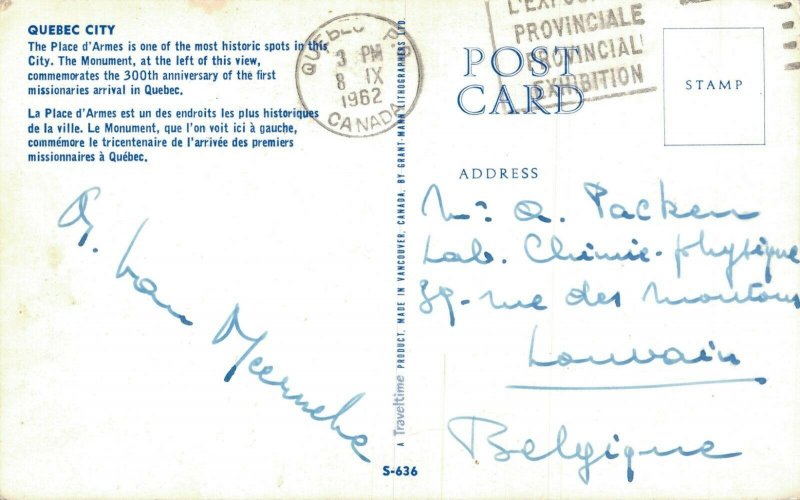 QUEBEC CITY
The Place d'Armes is one of the most historic spots in this
City. The Monument, at the left of this view,
commemorates the 300th anniversary of the first
missionaries arrival in Quebec.
La Place d'Armes est un des endroits les plus historiques
de la ville. Le Monument, que l'on voit ici à gauche,
commémore le tricentenaire de l'arrivée des premiers
missionnaires à Québec.
G. Van Meerssche
S-636
A Traveltime PRODUCT, MADE IN VANCOUVER, CANADA, BY GRANT-MANN LITHOGRAPHERS LTD.
QUEBEC P.Q.
3 PM
8 IX
1962
CANADA
PROVINCIALE
PROVINCIAL
EXHIBITION
POST
CARD
STAMP
ADDRESS
Mr. A. Packen
Lab. Chimie-physique
39-rue des moutons
Louvain
Belgique